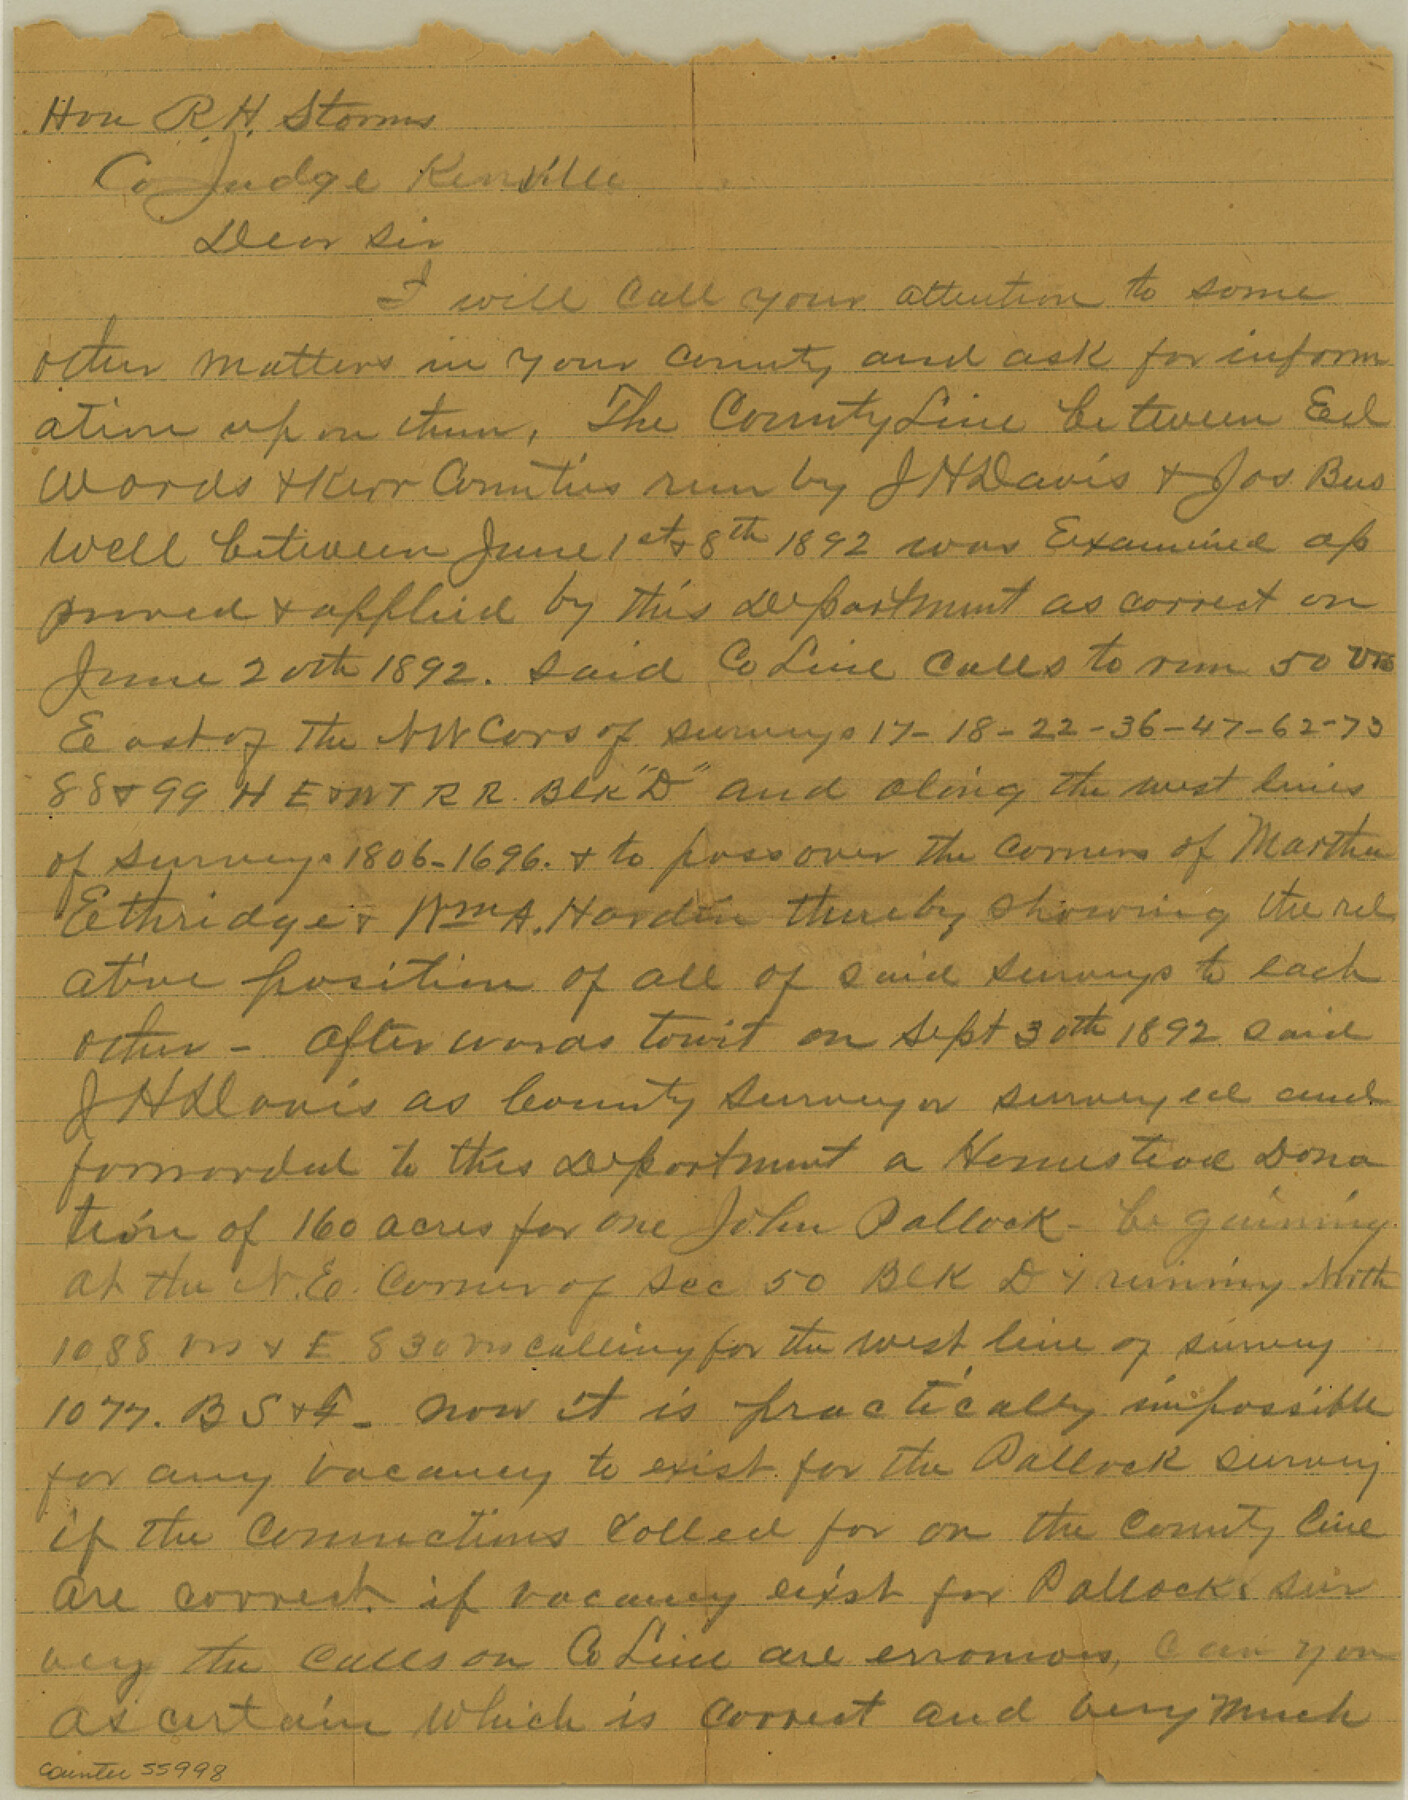 Hon R.H. Storms
Co Judge Kerrville
Dear Sir
I will call your attention to some
other matters in your County and ask for inform
ation upon them, The County Line between Ed
wards & Kerr Counties run by J H Davis & Jos Bus
well between June 1st & 8th 1892 was Examined ap
proved & applied by this Department as correct on
June 20th 1892. Said Co Line calls to run 50 vrs
East of the NW Cors of surveys 17-18-22-36-47-62-73
88 & 99 H E & W T R R. Blk "D" and along the west lines
of surveys 1806-1696. & to pass over the corners of Martha
Ethridge & Wm A. Hardin thereby showing the rel
ative position of all of said surveys to each
other - Afterwards towit on Sept 30th 1892 said
J H Davis as County Surveyor surveyed and
forwarded to this Department a Homestead Dona
tion of 160 acres for one John Pallock - beginning
at the N.E. Corner of Sec 50 Blk D & running North
1088 vrs & E 830 vrs calling for the west line of survey
1077. B S & F - Now it is practically impossible
for any vacancy to exist for the Pallock survey
if the Connections called for on the County Line
are correct. if vacancy exist for Pallocks sur
vey the calls on Co Line are erronous, Can you
ascertain which is correct and very much
counter 55998